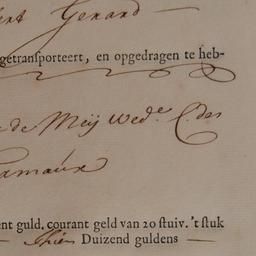 ert Genard
getransporteert, en opgedragen te heb-
de Meij Wed.e C. des
Ramaux
ent guld. courant geld van 20 stuiv. 't stuk
Thien Duizend guldens